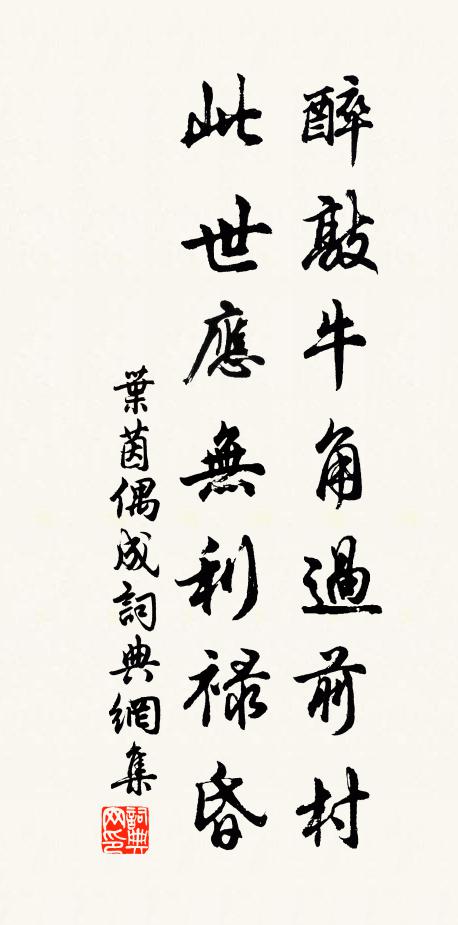 醉敲牛角過前村
此世應無利祿昏
葉茵偶成詞典網集
詞典网印